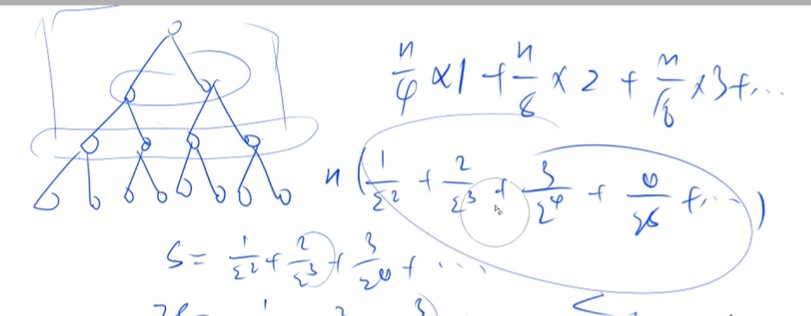 n/4 × 1 + n/8 × 2 + n/16 × 3 + ...
n ( 1/2^2 + 2/2^3 + 3/2^4 + 4/2^5 + ... )
S = 1/2^2 + 2/2^3 + 3/2^4 + ...